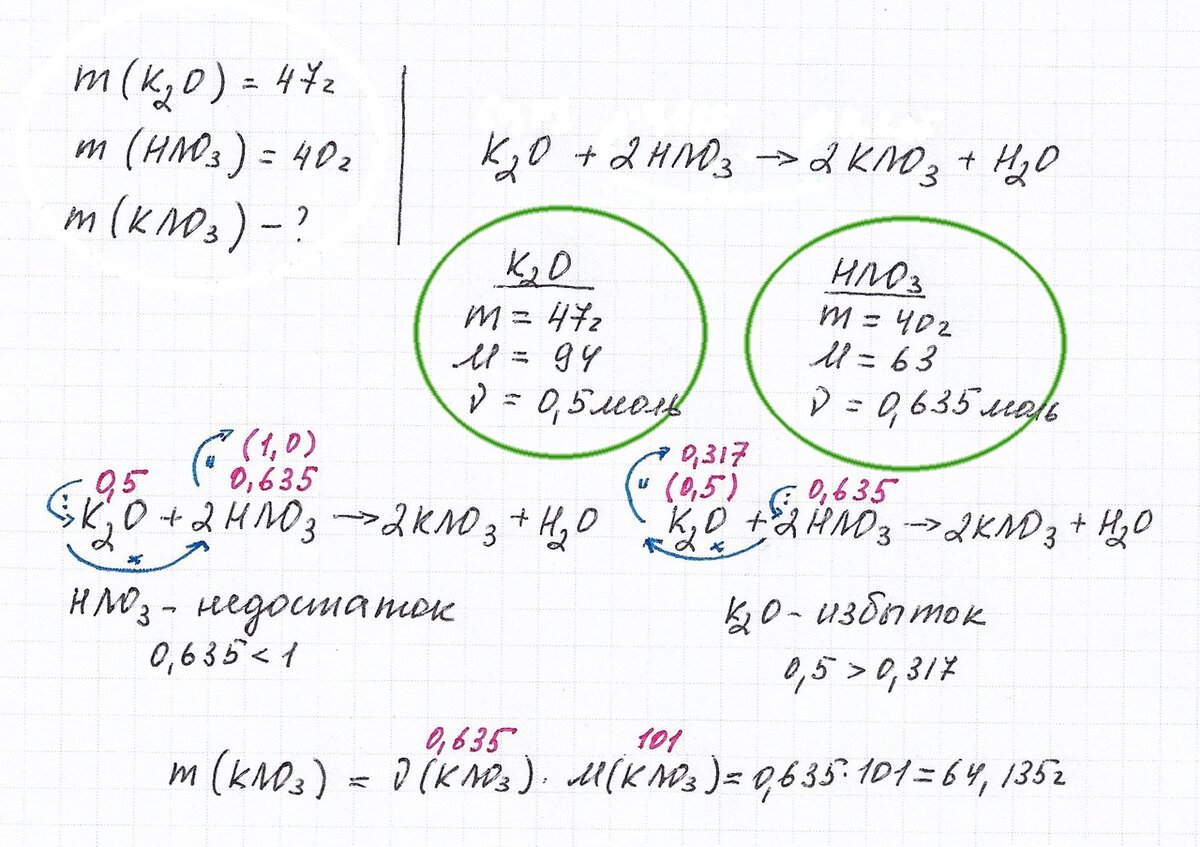 m(K₂O) = 47г
m(HNO₃) = 40г
m(KNO₃) – ?
K₂O + 2HNO₃ → 2KNO₃ + H₂O
K₂O
m = 47г
M = 94
ν = 0,5 моль
HNO₃
m = 40г
M = 63
ν = 0,635 моль
(1,0)
0,5 0,635
: ''
K₂O + 2HNO₃ → 2KNO₃ + H₂O
×
HNO₃ – недостаток
0,635 < 1
0,317
(0,5) 0,635
'' :
K₂O + 2HNO₃ → 2KNO₃ + H₂O
×
K₂O – избыток
0,5 > 0,317
0,635 101
m(KNO₃) = ν(KNO₃) · M(KNO₃) = 0,635·101 = 64,135г